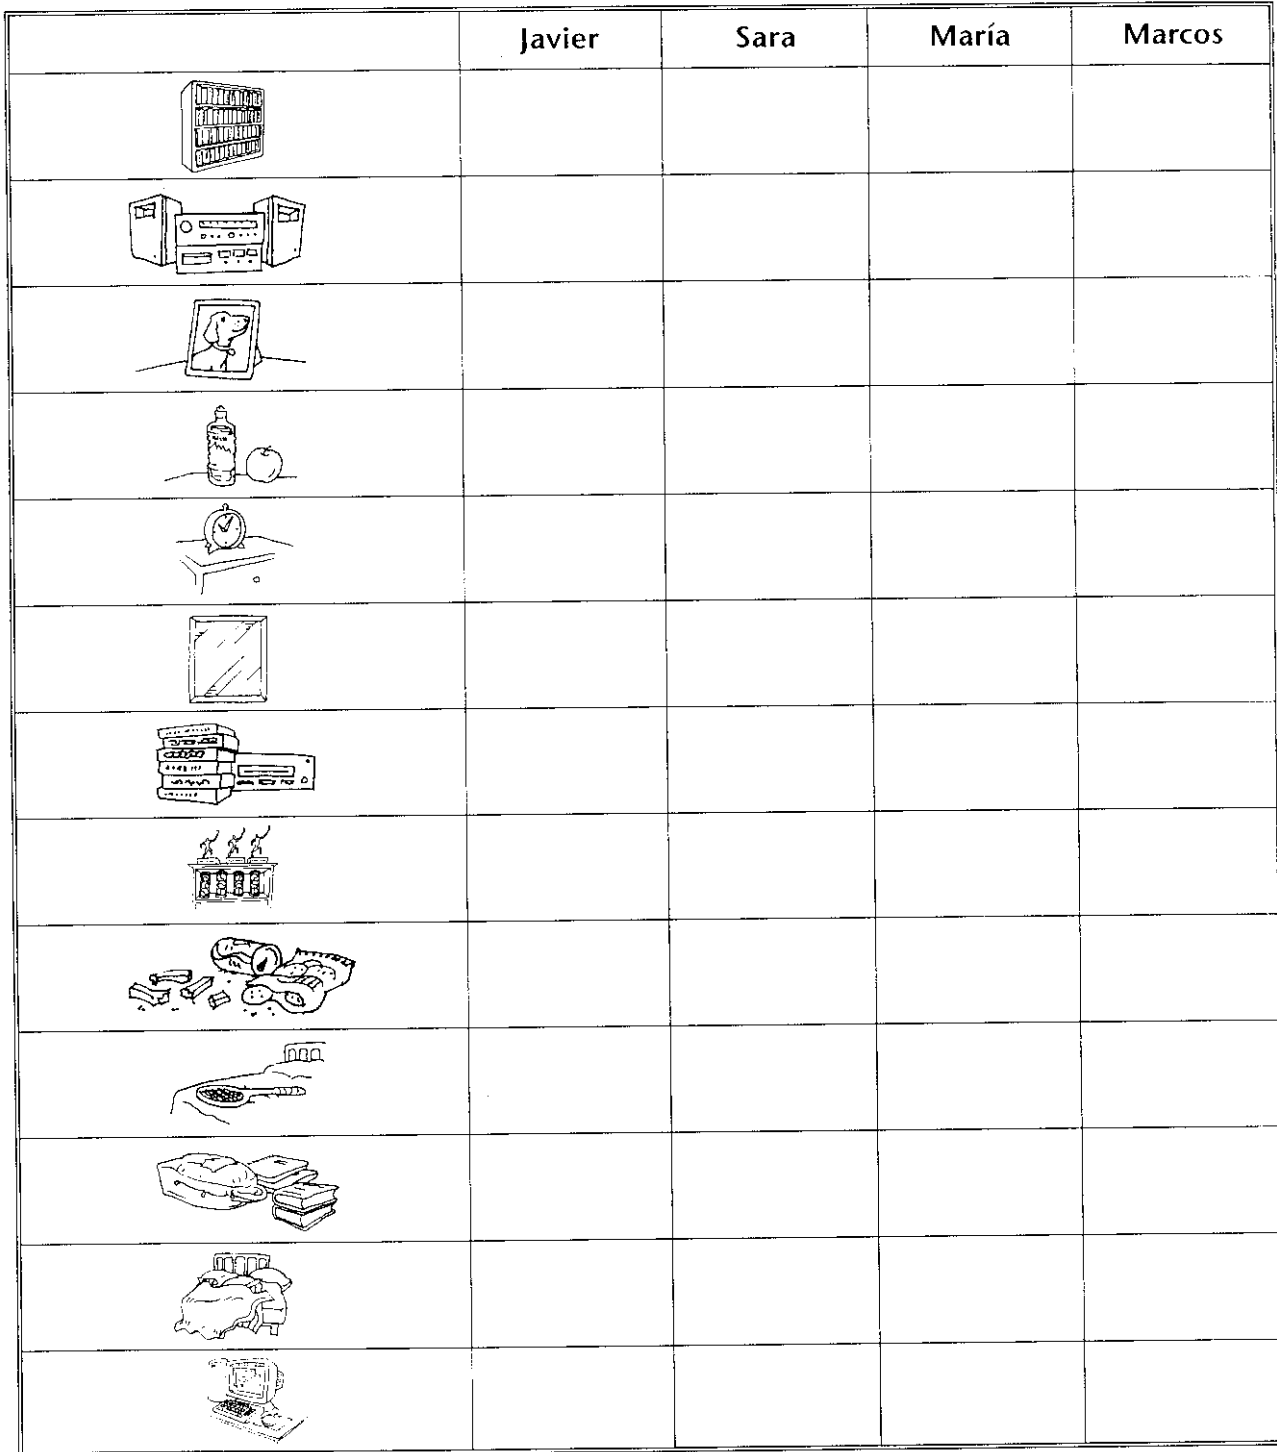 Javier Sara María Marcos